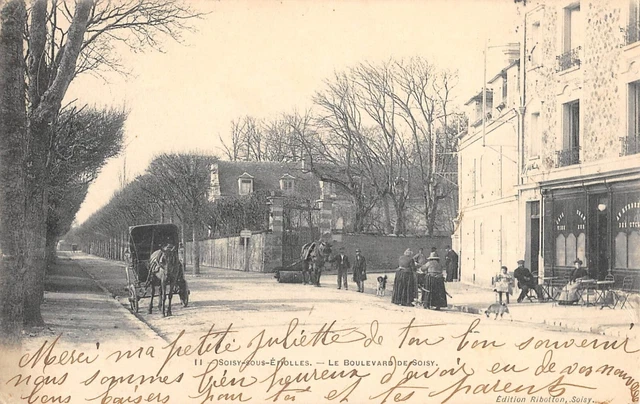 11 SOISY-SOUS-ÉTIOLLES. — LE BOULEVARD DE SOISY.
Merci ma petite Juliette de ton bon souvenir
nous sommes bien heureux d'avoir eu de vos nouvelles
bons baisers pour toi et les parents
Édition Ribotton, Soisy.